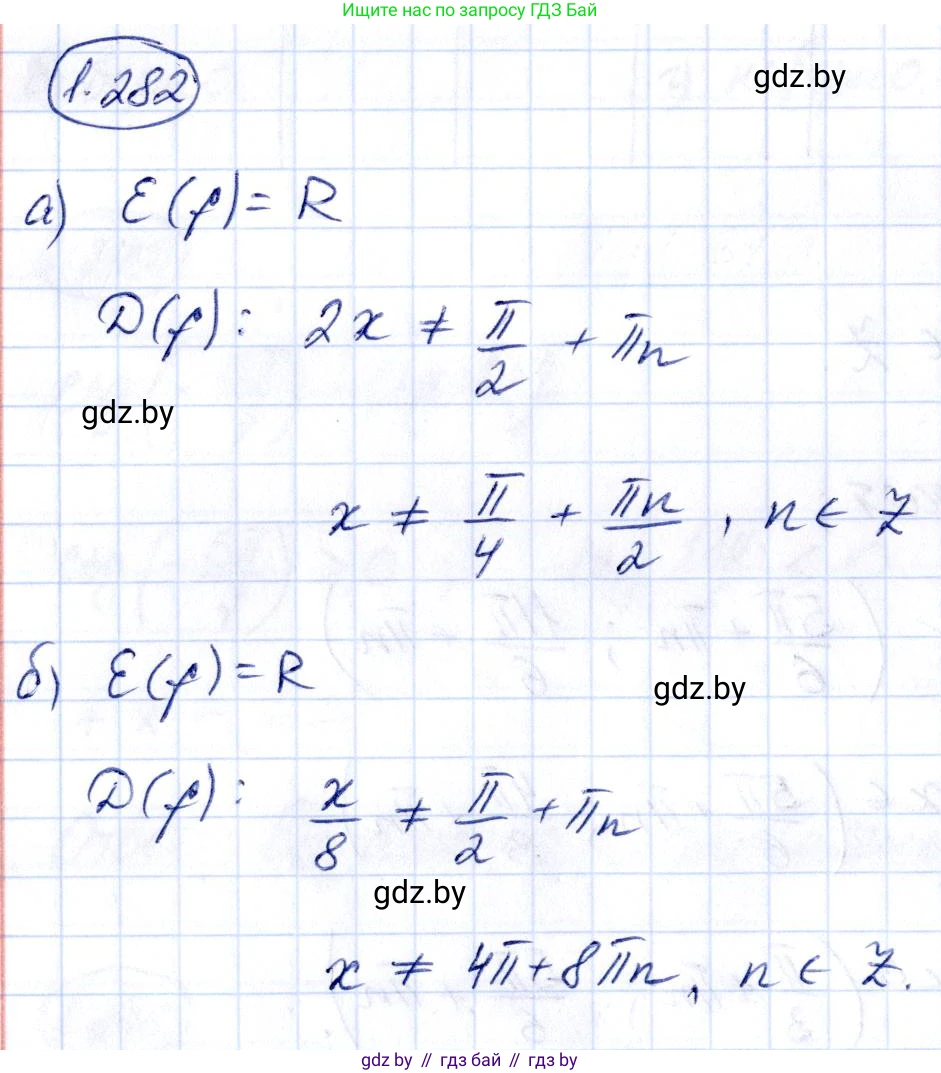 Ищите нас по запросу ГДЗ Бай
1.282
gdz.by
а) E(f) = R
D(f): 2x ≠ π/2 + πn
gdz.by
x ≠ π/4 + πn/2, n ∈ Z
б) E(f) = R
gdz.by
D(f): x/8 ≠ π/2 + πn
gdz.by
x ≠ 4π + 8πn, n ∈ Z.
gdz by // гдз бай // гдз by